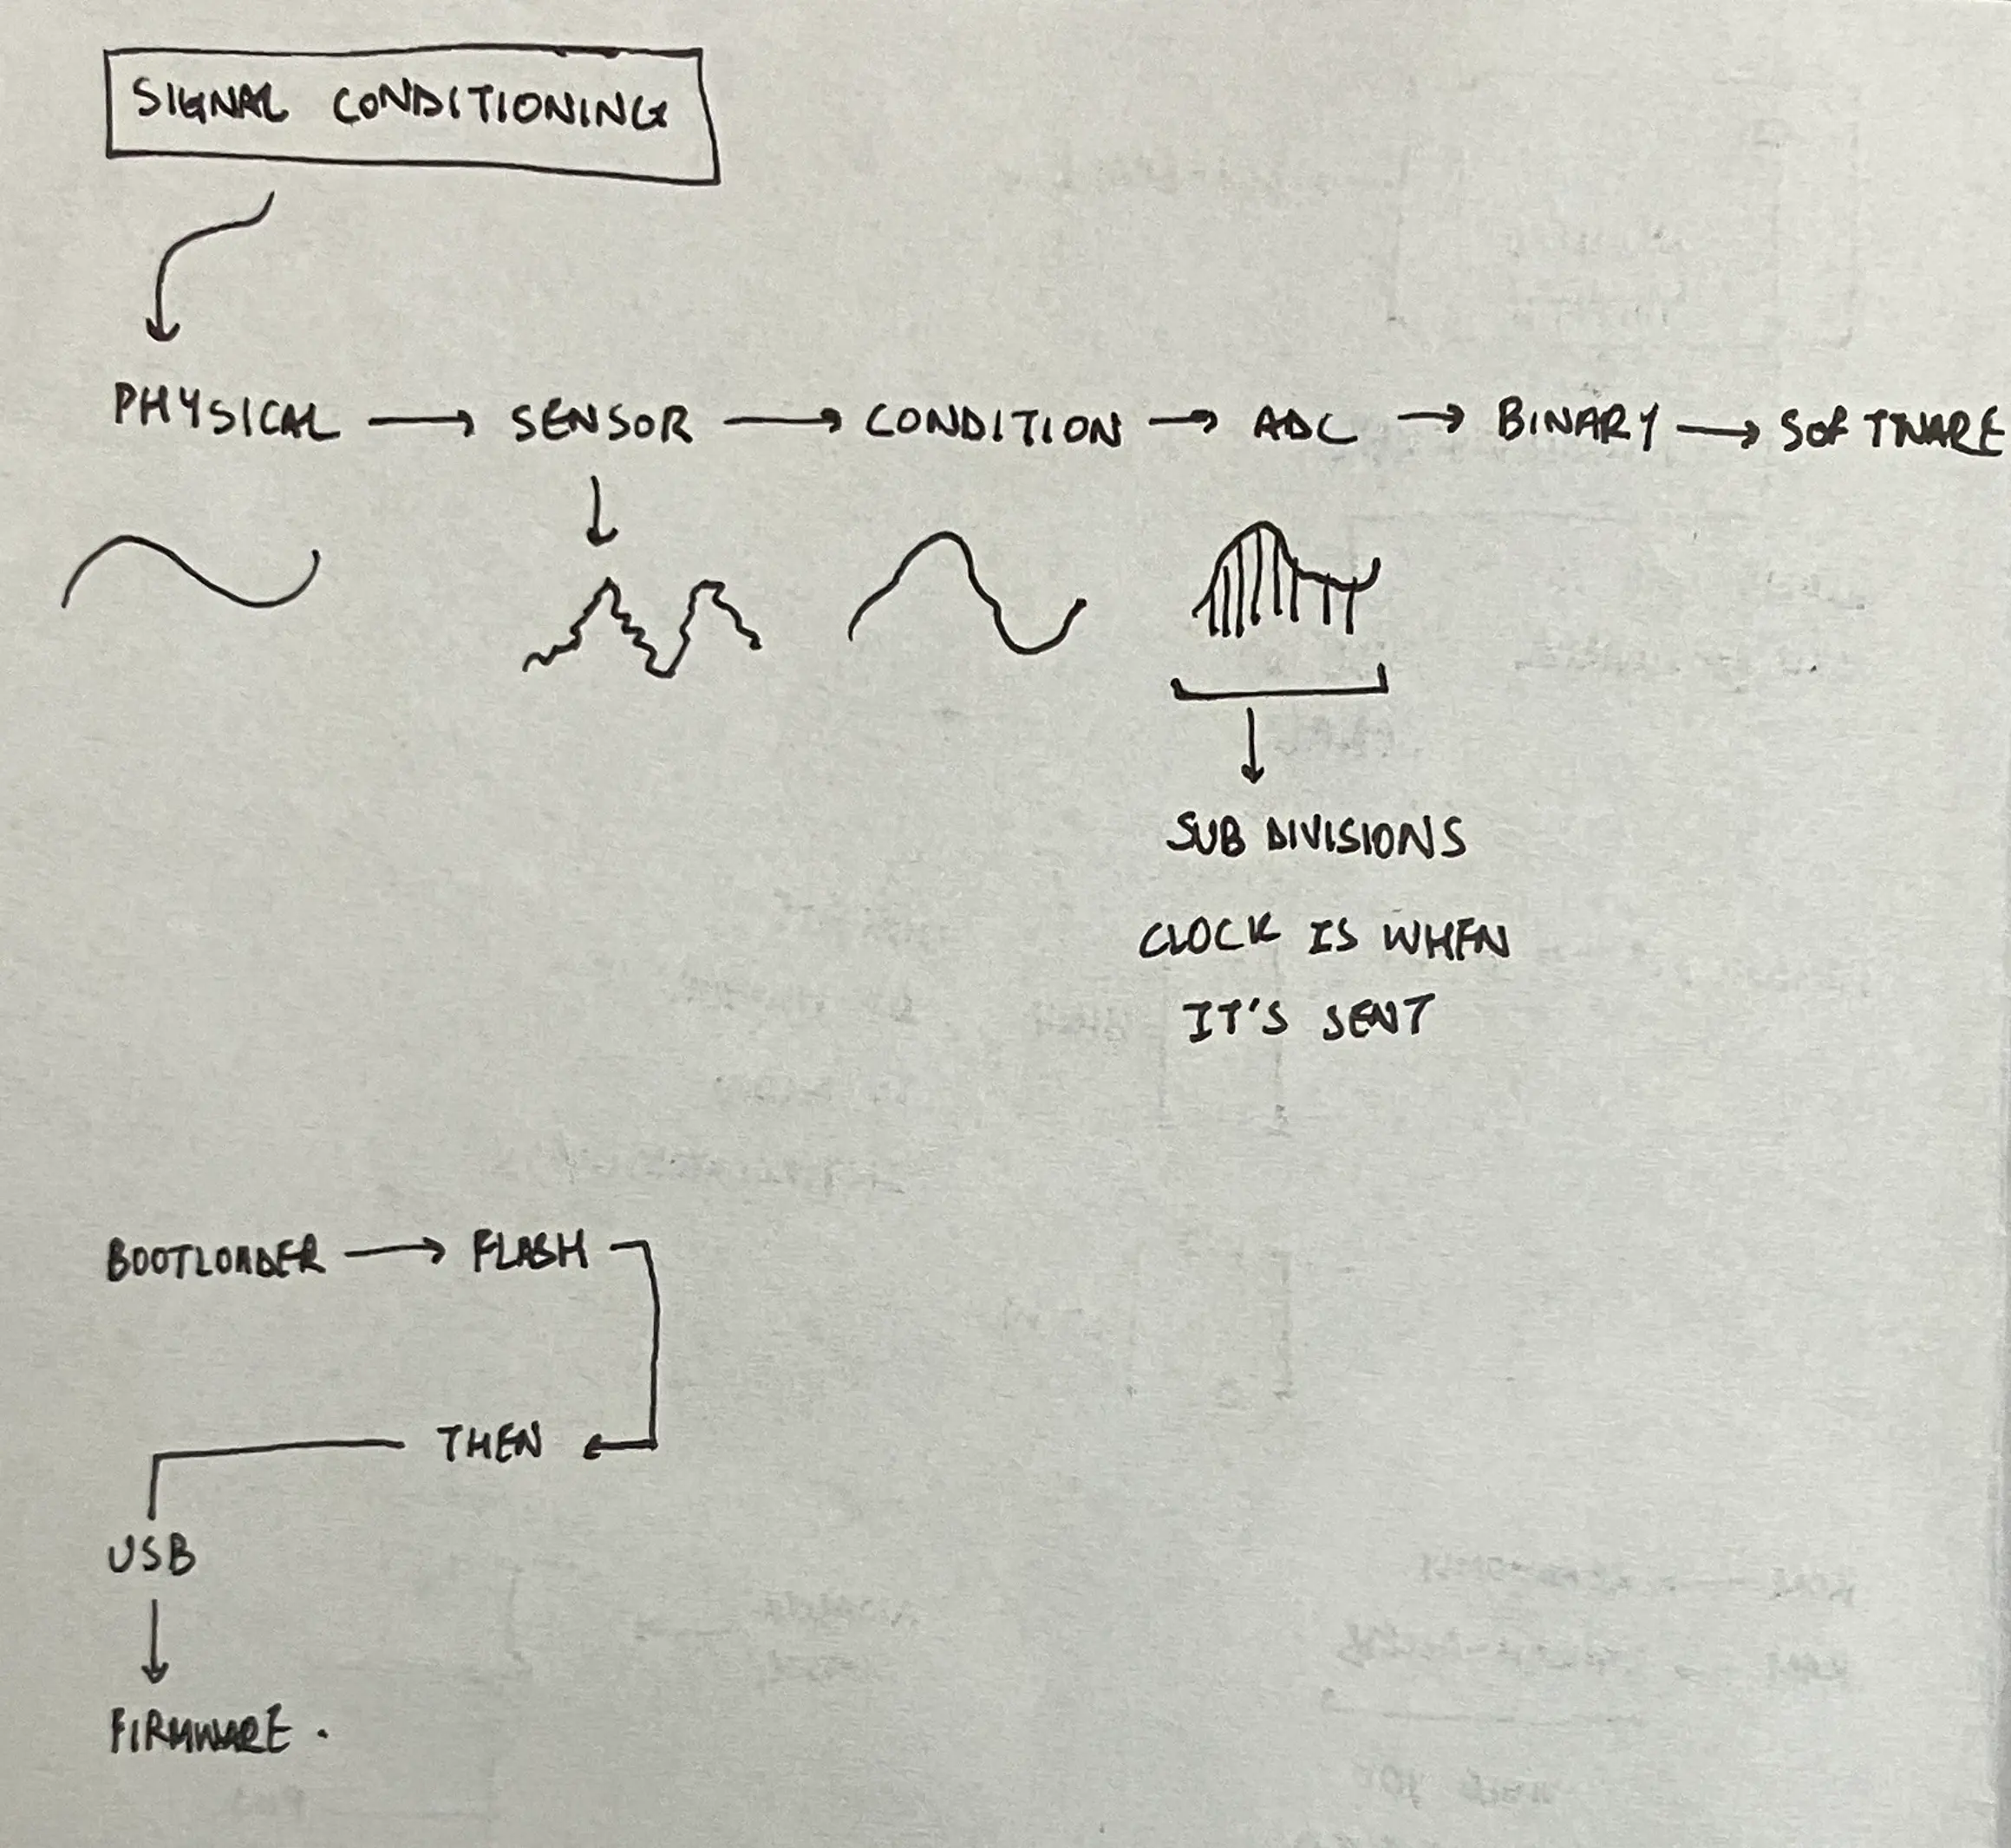 SIGNAL CONDITIONING
PHYSICAL → SENSOR → CONDITION → ADC → BINARY → SOFTWARE
SUB DIVISIONS
CLOCK IS WHEN
IT'S SENT
BOOTLOADER → FLASH
THEN
USB
FIRMWARE.